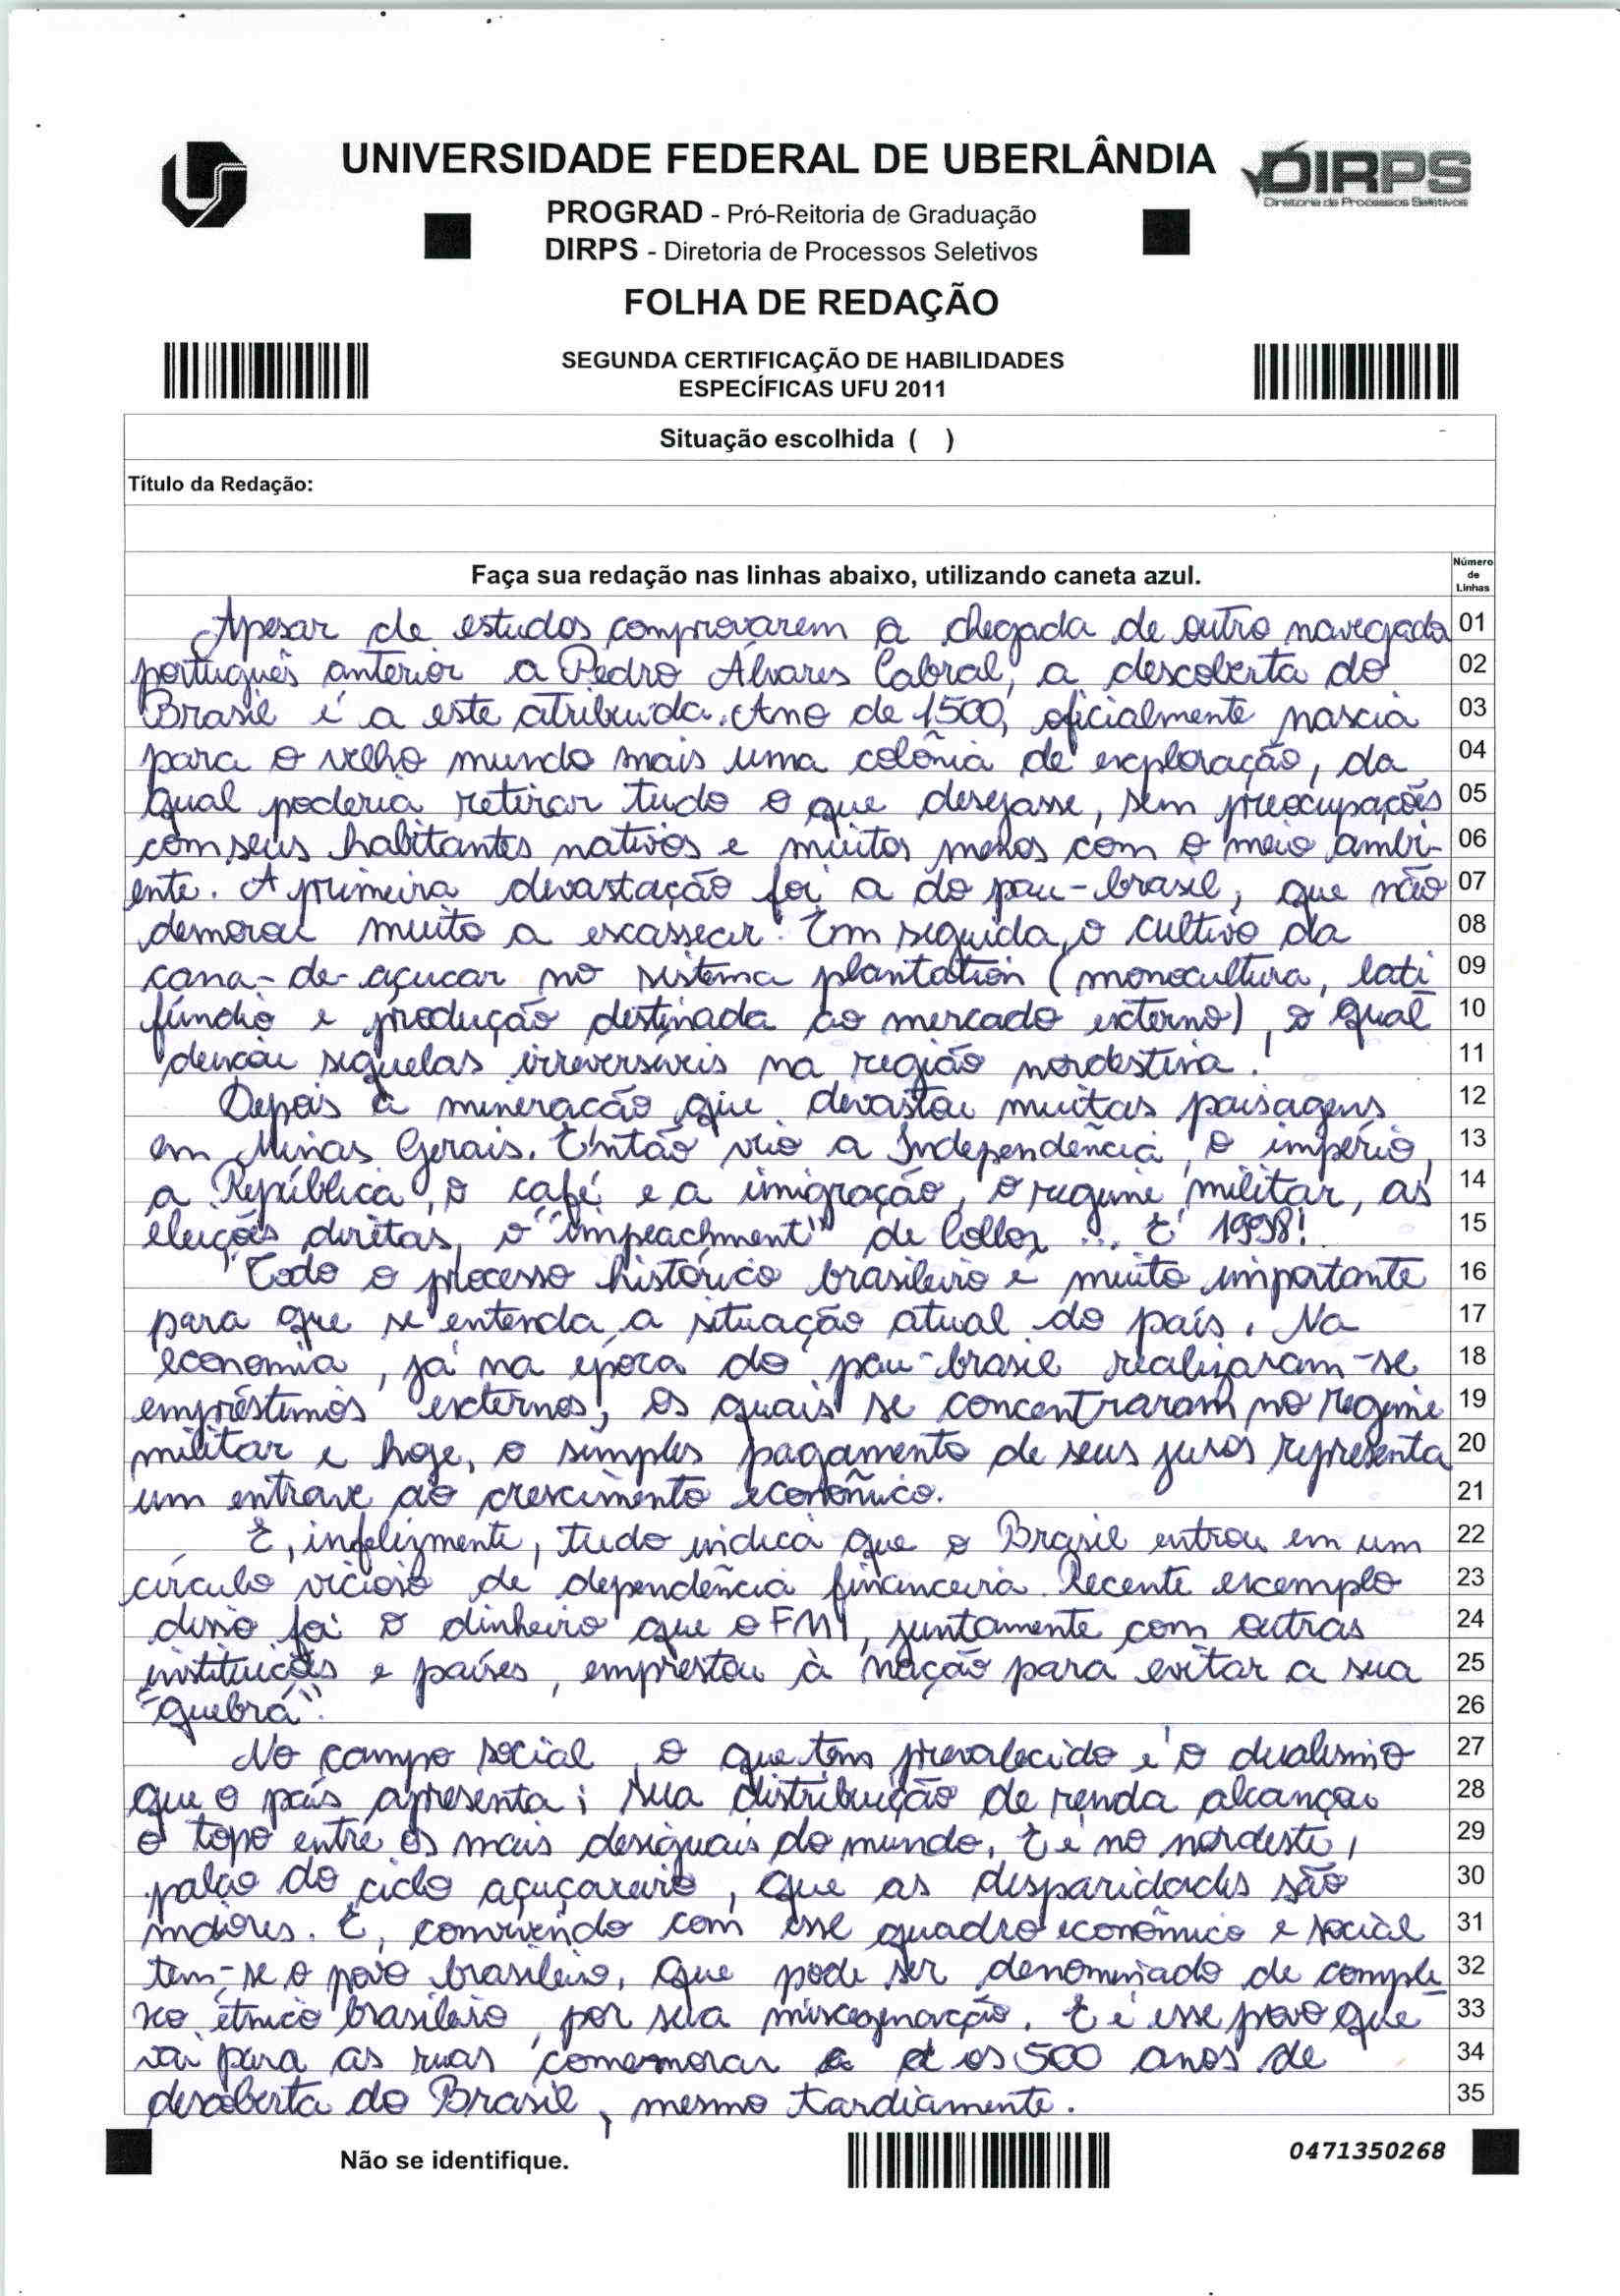 UNIVERSIDADE FEDERAL DE UBERLÂNDIA
DIRPS
Diretoria de Processos Seletivos
PROGRAD - Pró-Reitoria de Graduação
DIRPS - Diretoria de Processos Seletivos
FOLHA DE REDAÇÃO
SEGUNDA CERTIFICAÇÃO DE HABILIDADES
ESPECÍFICAS UFU 2011
Situação escolhida ( )
Título da Redação:
Faça sua redação nas linhas abaixo, utilizando caneta azul.
Número de Linhas
Apesar de estudos comprovarem a chegada de outro navegado 01
português anterior a Pedro Álvares Cabral, a descoberta do 02
Brasil é a este atribuida. Ano de 1500, oficialmente nascia 03
para o velho mundo mais uma colônia de exploração, da 04
qual poderia retirar tudo o que desejasse, sem preocupações 05
com seus habitantes nativos e muitos menos com o meio ambi- 06
ente. A primeira devastação foi a do pau-brasil, que não 07
demorou muito a escassear. Em seguida, o cultivo da 08
cana-de-açucar no sistema plantation (monocultura, lati 09
fúndio e produção destinada ao mercado externo), o qual 10
deixou sequelas irreversíveis na região nordestina. 11
Depois a mineração que devastou muitas paisagens 12
em Minas Gerais. Então veio a Independência, o império, 13
a República, o café e a imigração, o regime militar, as 14
eleições diretas, o "impeachment" de Collor ... É 1998! 15
Todo o processo histórico brasileiro é muito importante 16
para que se entenda a situação atual do país. Na 17
economia, já na época do pau-brasil realizaram-se 18
empréstimos externos, os quais se concentraram no regime 19
militar e hoje, o simples pagamento de seus juros representa 20
um entrave ao crescimento econômico. 21
E, infelizmente, tudo indica que o Brasil entrou em um 22
círculo vicioso de dependência financeira. Recente exemplo 23
disso foi o dinheiro que o FMI, juntamente com outras 24
instituições e países, emprestou à nação para evitar a sua 25
"quebra". 26
No campo social, o que tem prevalecido é o dualismo 27
que o país apresenta; sua distribuição de renda alcançou 28
o topo entre os mais desiguais do mundo. E é no nordeste, 29
palco do ciclo açucareiro, que as disparidades são 30
maiores. E, convivendo com esse quadro econômico e social 31
tem-se o povo brasileiro, que pode ser denominado de comple 32
xo étnico brasileiro, por sua miscegenação. E é esse povo que 33
vai para as ruas comemorar os 500 anos de 34
descoberta do Brasil, mesmo tardiamente. 35
Não se identifique.
0471350268